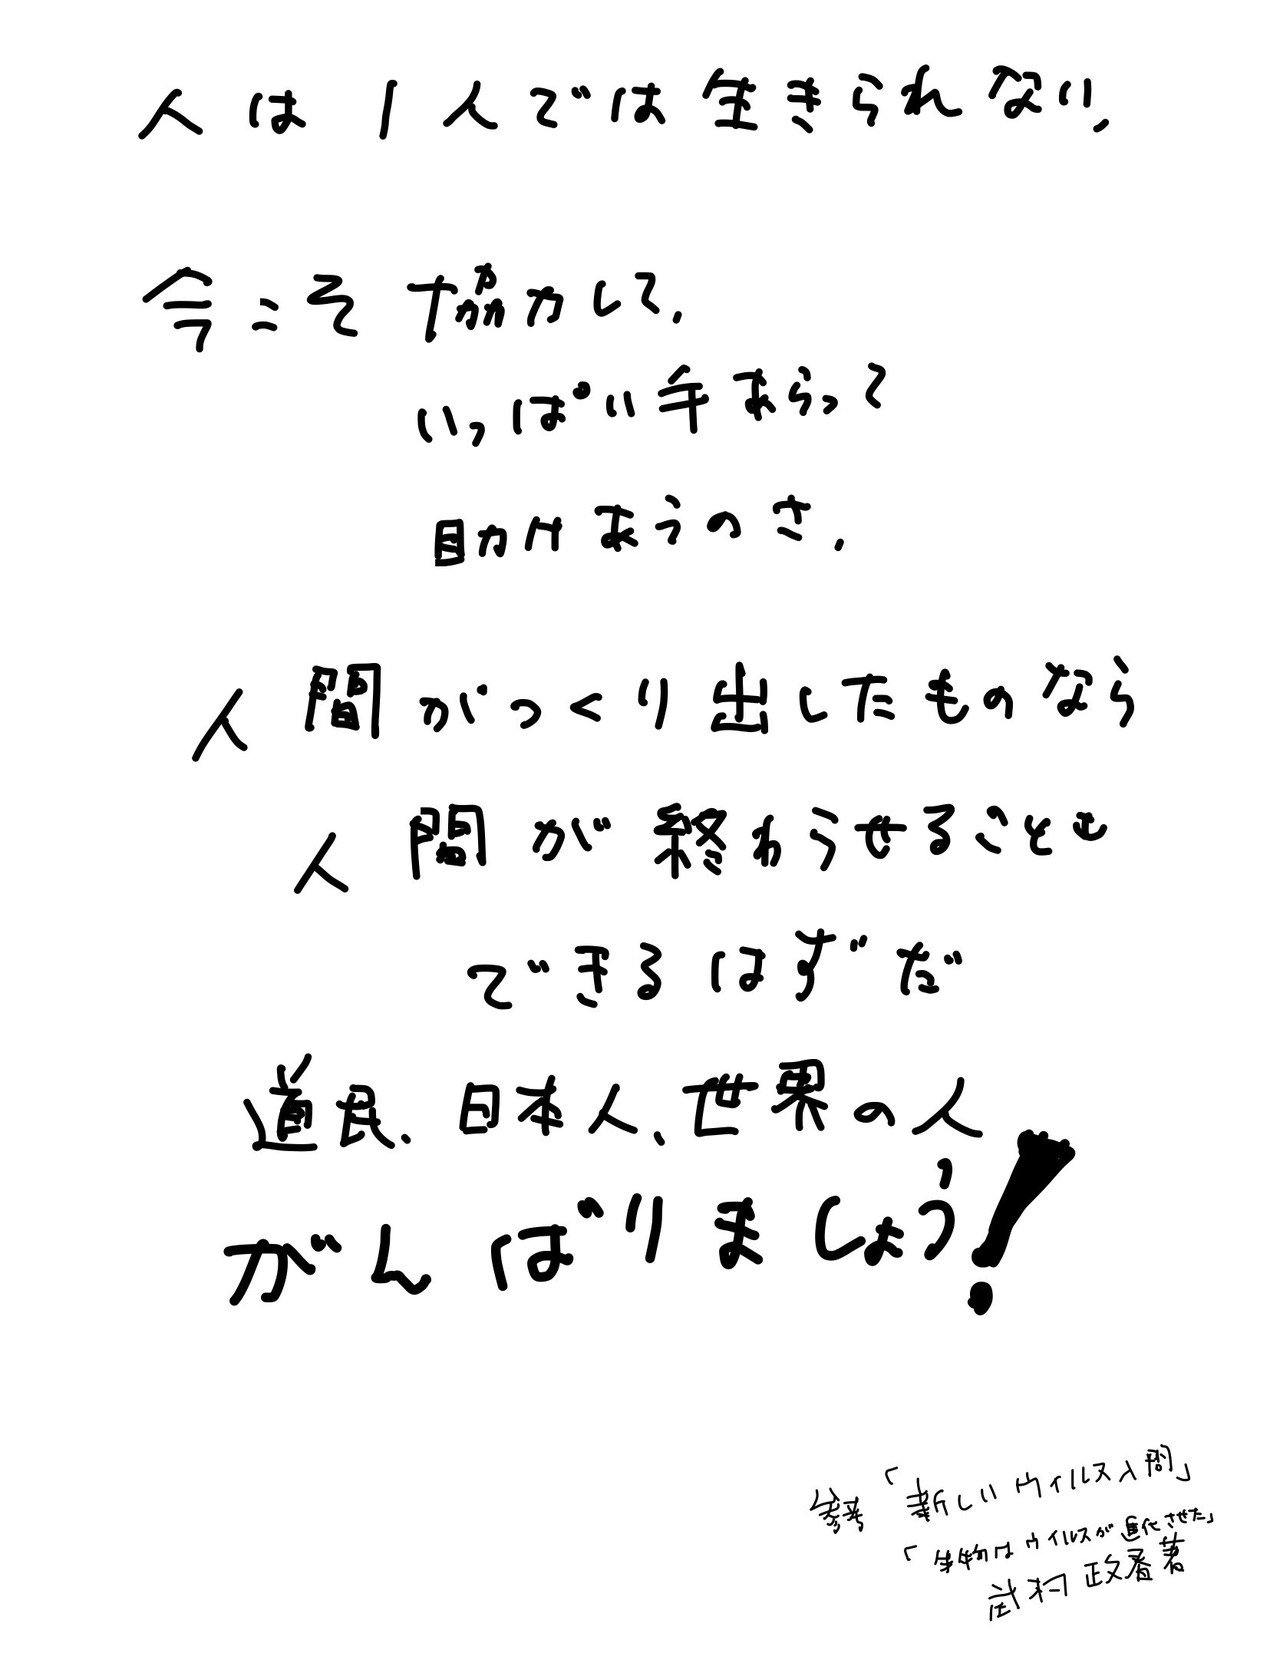 人は1人では生きられない、
今こそ協力して、
いっぱい手あらって
助けあうのさ、
人間がつくり出したものなら
人間が終わらせることも
できるはずだ
道民、日本人、世界の人
がんばりましょう!
参考「新しいウィルス入門」
「生物はウイルスが進化させた」
武村政春著